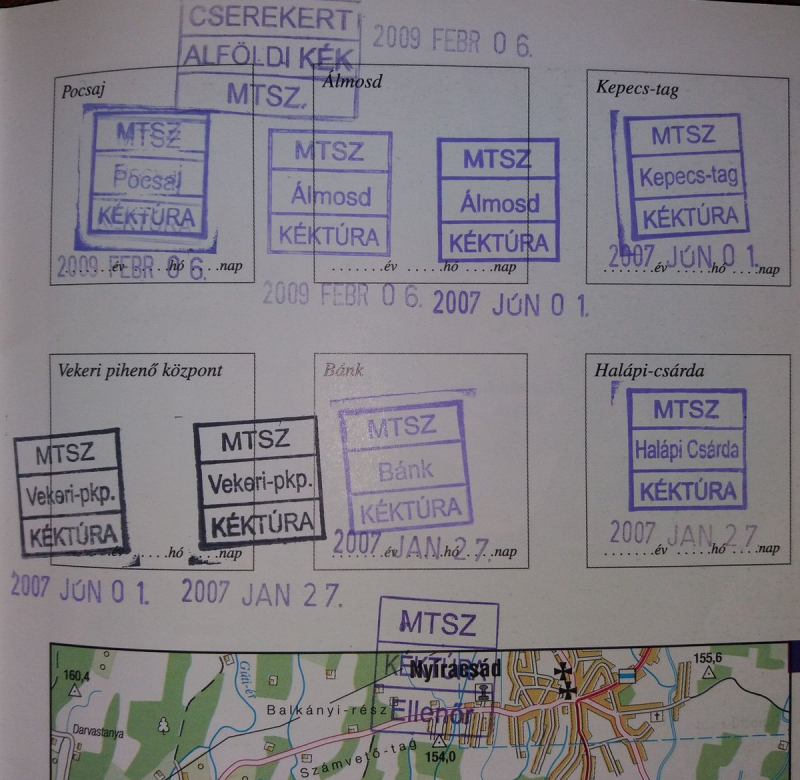 CSEREKERT
ALFÖLDI KÉK
MTSZ.
2009 FEBR 06.
Pocsaj
MTSZ
Pocsaj
KÉKTÚRA
......év .....hó ....nap
2009 FEBR 06.
Álmosd
MTSZ
Álmosd
KÉKTÚRA
MTSZ
Álmosd
KÉKTÚRA
.......év .....hó ....nap
2009 FEBR 06.
2007 JÚN 01.
Kepecs-tag
MTSZ
Kepecs-tag
KÉKTÚRA
2007 JÚN 01.
.......év .....hó ....nap
Vekeri pihenő központ
MTSZ
Vekeri-pkp.
KÉKTÚRA
MTSZ
Vekeri-pkp.
KÉKTÚRA
év .....hó ....nap
2007 JÚN 01.
2007 JAN 27.
Bánk
MTSZ
Bánk
KÉKTÚRA
2007 JAN 27.
.......év .....hó ....nap
Halápi-csárda
MTSZ
Halápi Csárda
KÉKTÚRA
2007 JAN 27.
.......év .....hó ....nap
MTSZ
KÉKTÚRA
Ellenőr
160,4
Darvastanya
Gúti-ér
Balkányi-rész
Számvető-tag
Nyíracsád
154,0
155,6